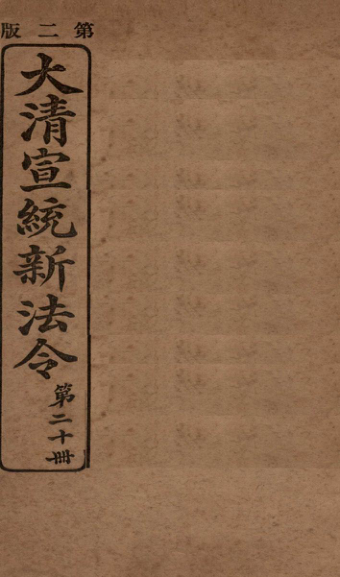 第二版
大清宣統新法令
第二十冊